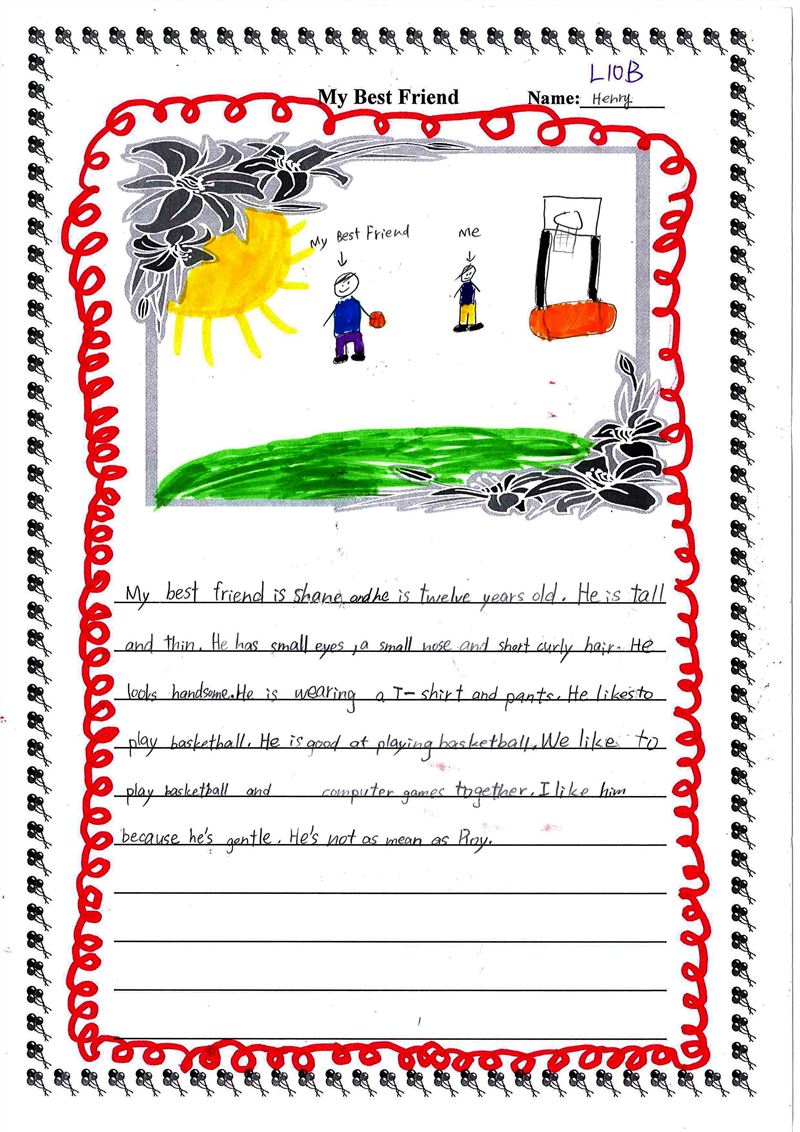 L10B
My Best Friend Name: Henry
My Best Friend
Me
My best friend is shane and he is twelve years old. He is tall
and thin. He has small eyes, a small nose and short curly hair. He
looks handsome. He is wearing a T-shirt and pants. He likes to
play basketball. He is good at playing basketball. We like to
play basketball and computer games together. I like him
because he's gentle. He's not as mean as Roy.